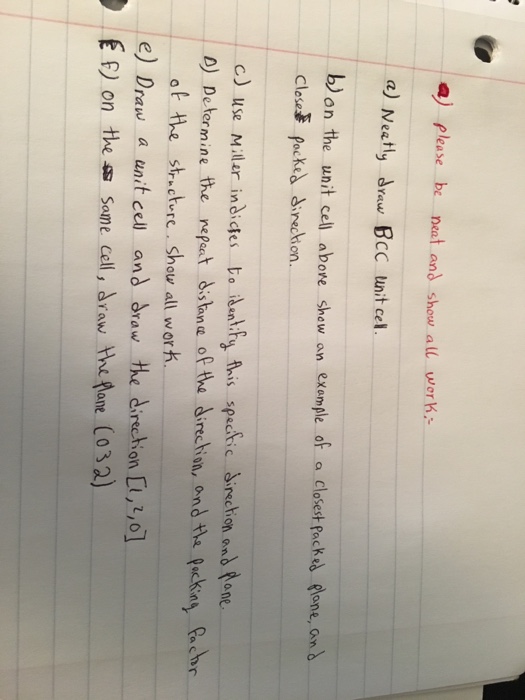 a) please be neat and show all work:-
a) Neatly draw BCC unit cell.
b) on the unit cell above show an example of a closest packed plane, and
closest packed direction.
c) use Miller indices to identify this specific direction and plane.
D) Determine the repeat distance of the direction, and the packing factor
of the structure. show all work.
e) Draw a unit cell and draw the direction [1,2,0]
f) on the same cell, draw the plane (032)